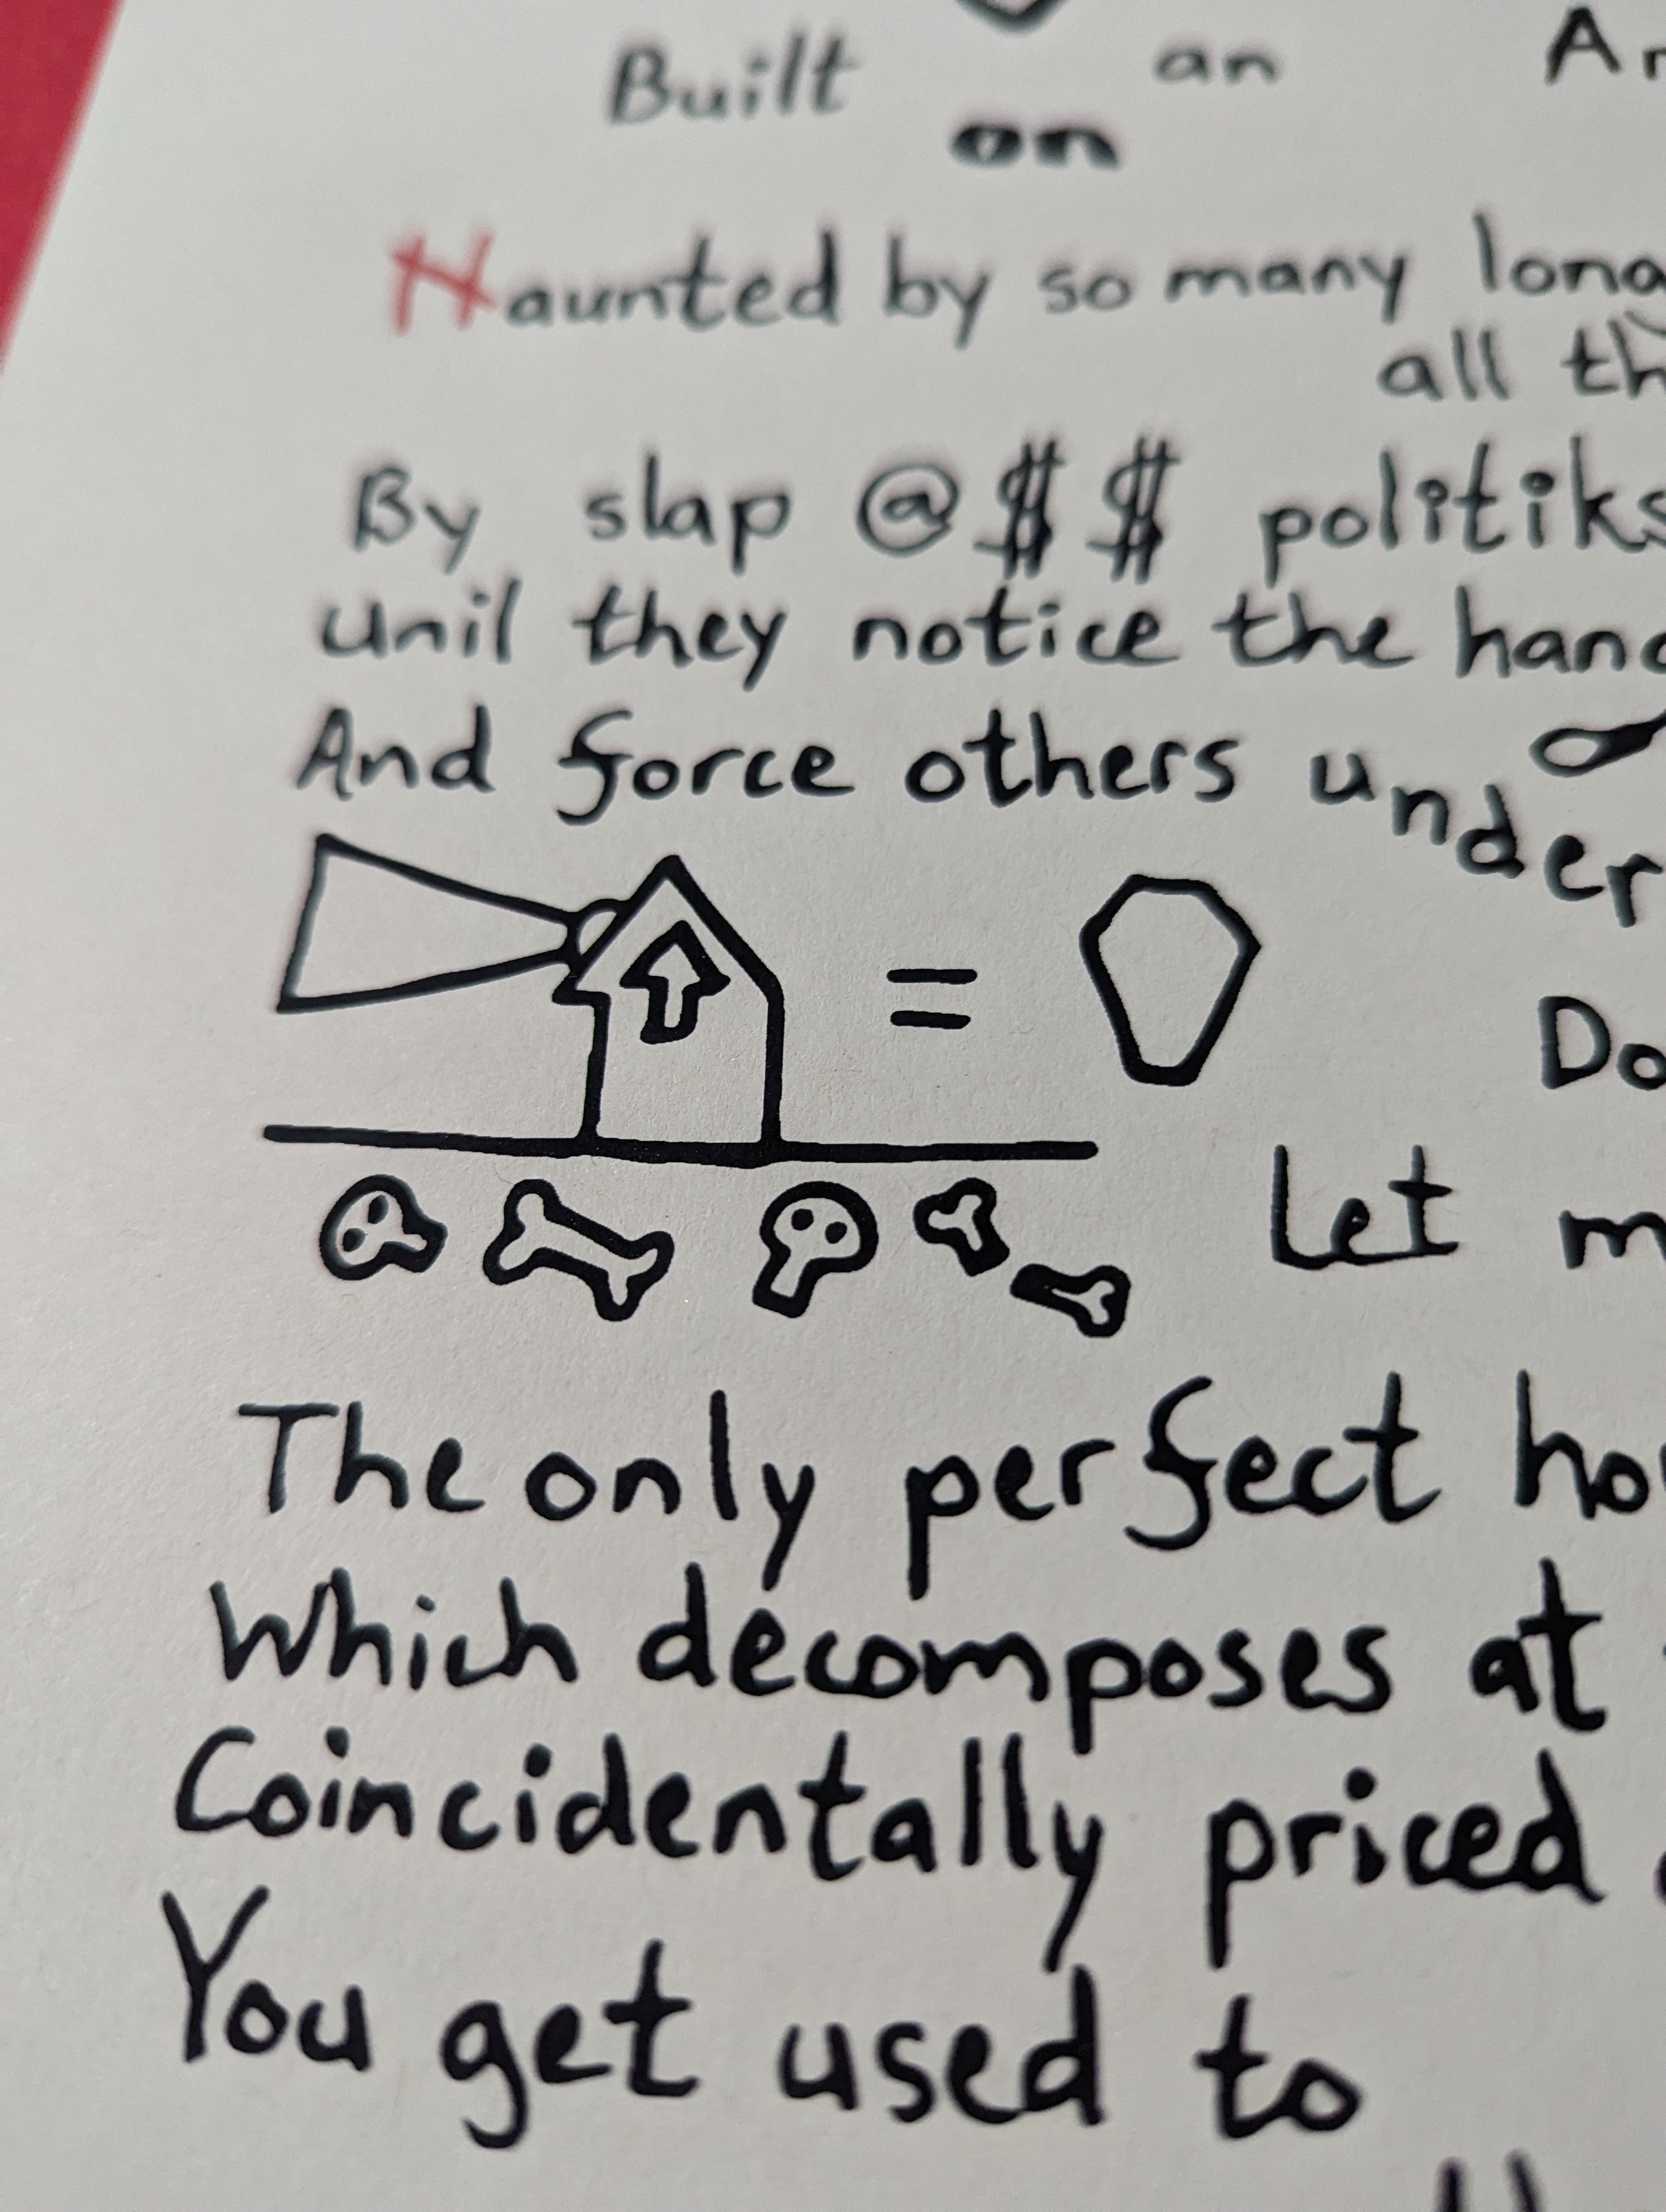 Built on an
Haunted by so many
all
By slap @$$ politiks
unil they notice the
And force others under
=
Do
Let
The only perfect
Which decomposes at
Coincidentally priced
You get used to